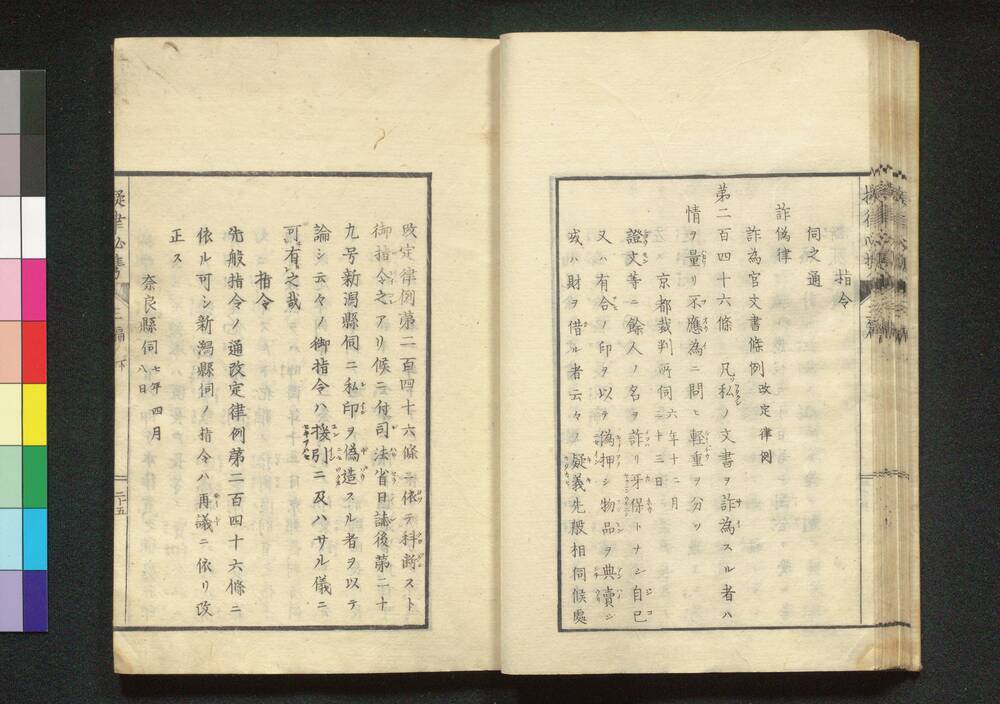 指令
伺之通
詐偽律
詐為官文書條例 改定律例
第二百四十六條 凡私ノ文書ヲ詐為スル者ハ
情ヲ量リ不應為ニ問ヒ輕重ヲ分ツ
京都裁判所伺 六年十二月二十三日
證文等ニ餘人ノ名ヲ詐リ牙保トナシ自己
又ハ有合ノ印ヲ以テ偽押シ物品ヲ典賣シ
或ハ財ヲ借ル者云々ノ疑義先般相伺候處
改定律例第二百四十六條ニ依テ科断スト
御指令之アリ候ニ付司法省日誌後第二十
九号新潟縣伺ニ私印ヲ偽造スル者ヲ以テ
論シ云々ノ御指令ハ援引ニ及ハサル儀ニ
可有之哉
指令
先般指令ノ通改定律例第二百四十六條ニ
依ル可シ新潟縣伺ノ指令ハ再議ニ依リ改
正ス
奈良縣伺 七年四月八日
二十五